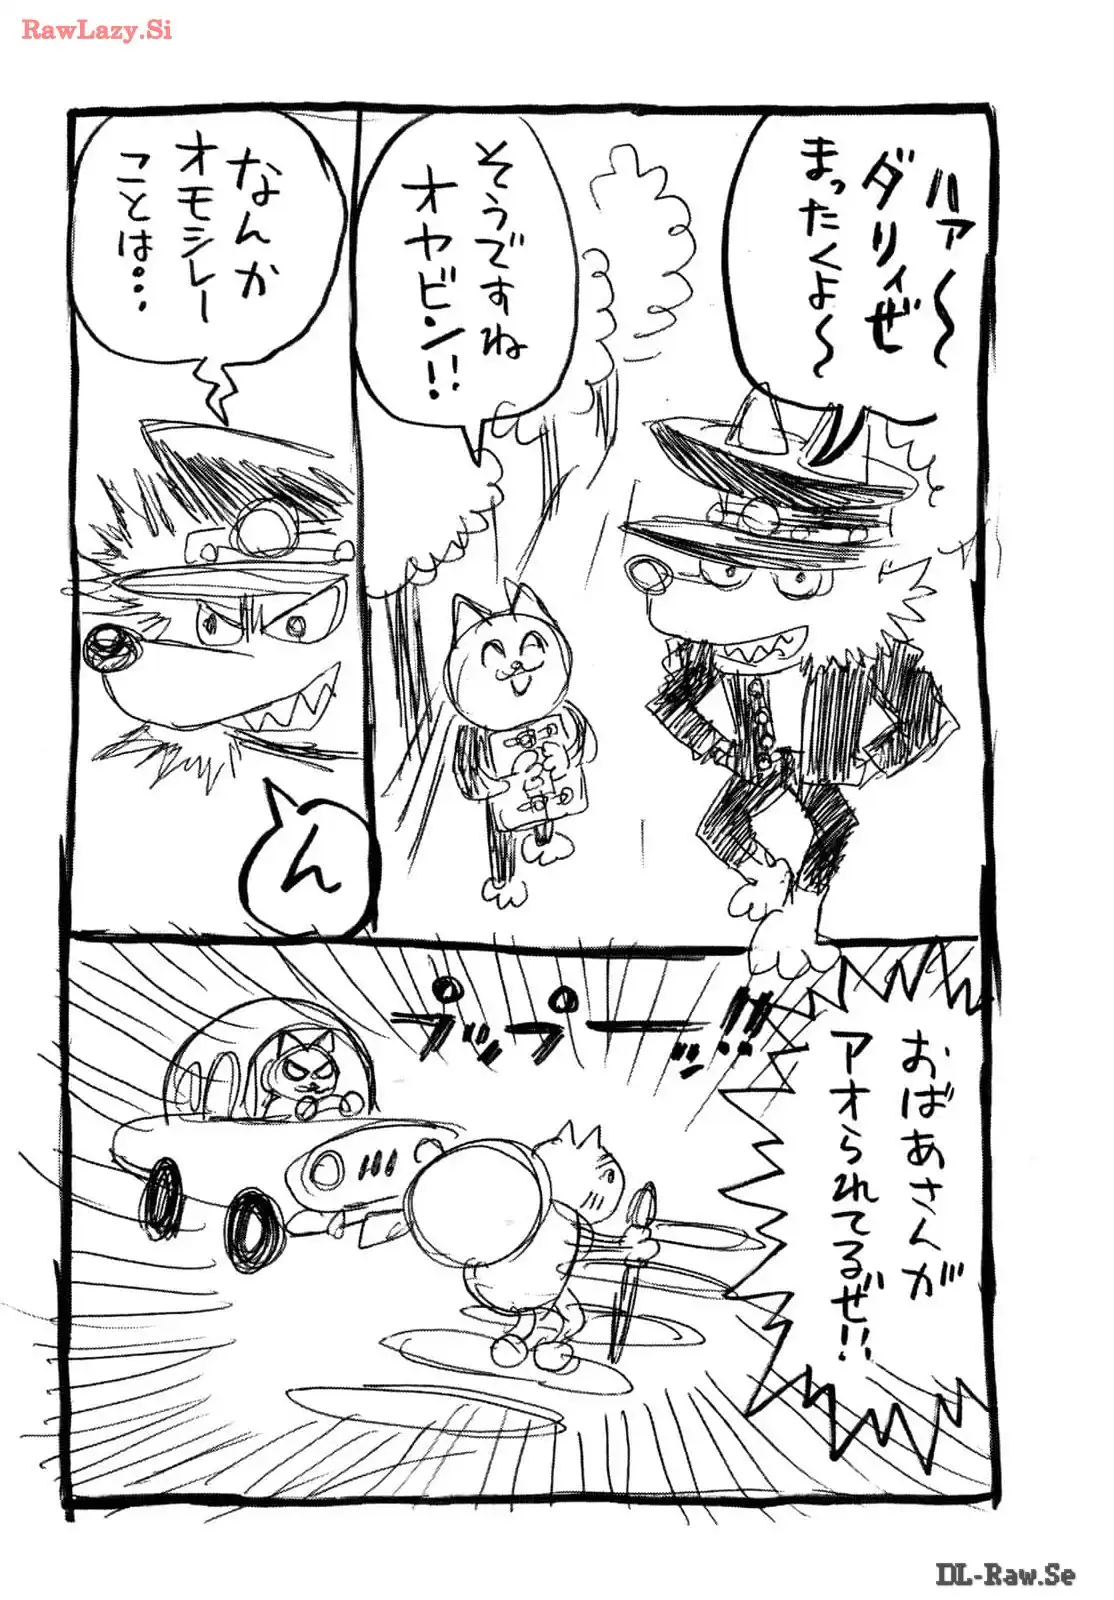 RawLazy.Si
ハァ〜
ダリィぜ
まったくよ〜
そうですね
オヤビン!!
なんか
オモシレー
ことは・・・
ん
プップー!!
おばあさんが
アオられてるぜ!!
DL-Raw.Se